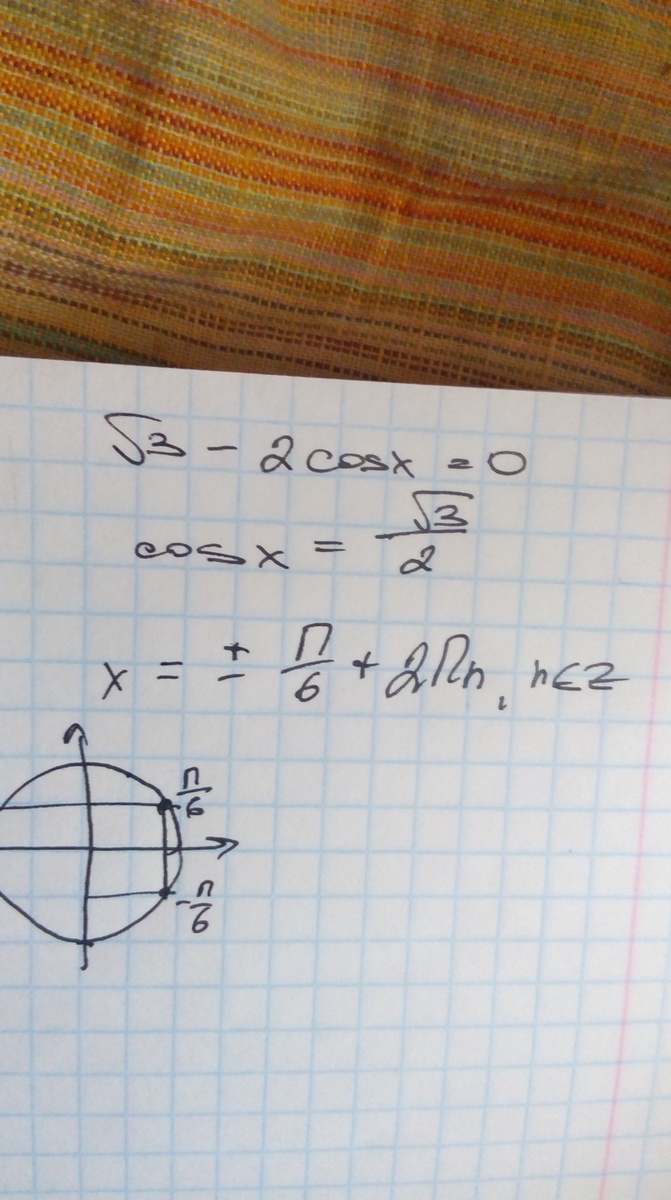 √3 - 2cosx = 0
cosx = √3/2
x = ± π/6 + 2πn, n∈Z
π/6
-π/6